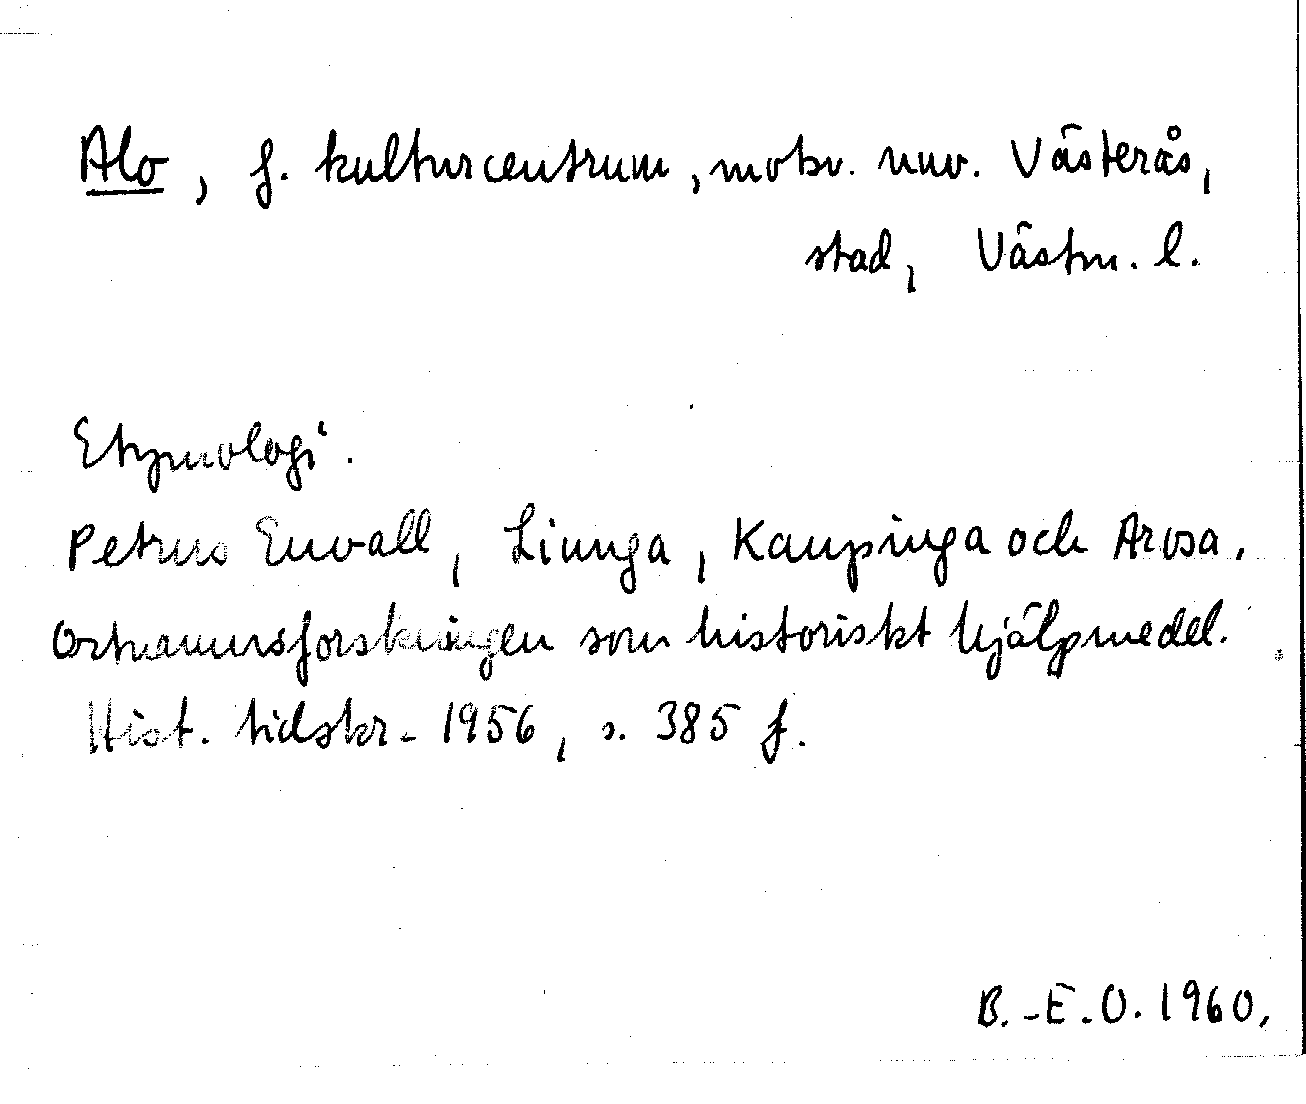 Alo, f. kulturcentrum, motsv. nuv. Västerås,
stad, Västm. l.
Etymologi.
Petrus Envall, Liunga, Kaupinga och Arosa.
Ortnamnsforskningen som historiskt hjälpmedel.
Hist. tidskr. 1956, s. 385 f.
B.-E.O. 1960.